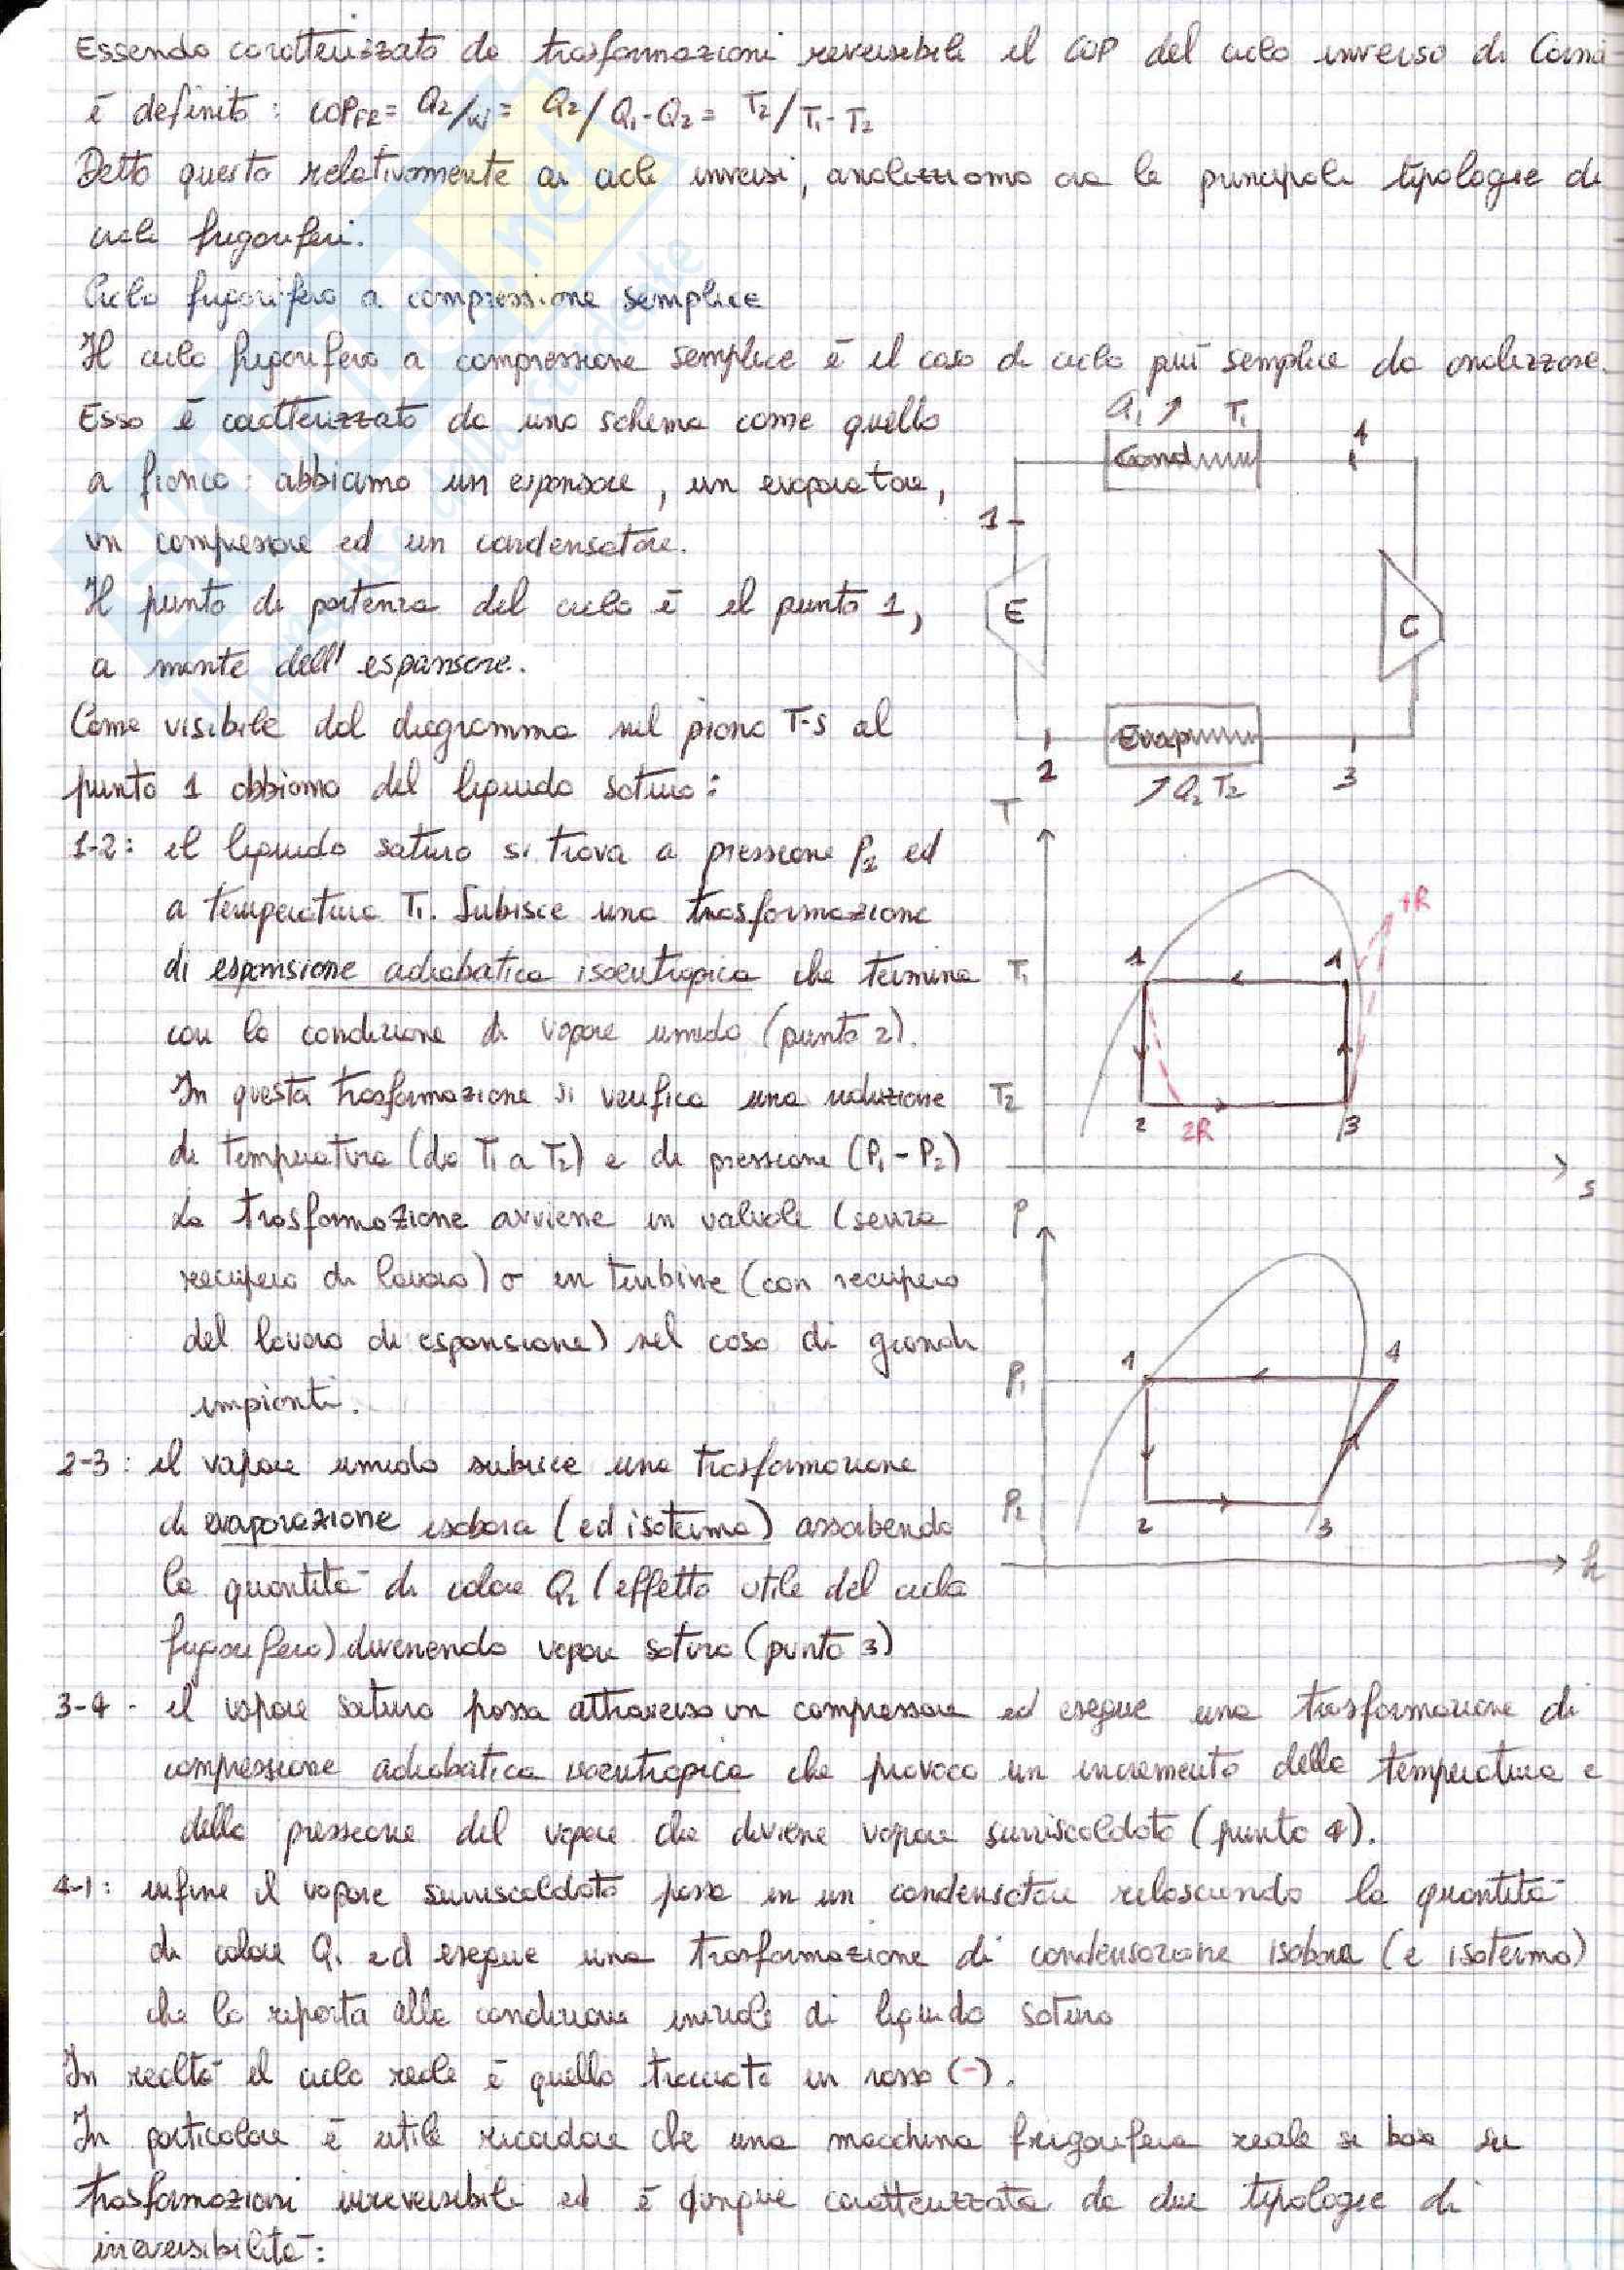 Essendo caratterizzato da trasformazioni reversibili il COP del ciclo inverso di Carnot
è definito: COPFR= Q2/W= Q2/Q1-Q2= T2/T1-T2
Detto questo relativamente ai cicli inversi, analizziamo ora le principali tipologie di
cicli frigoriferi.
Ciclo frigorifero a compressione semplice
Il ciclo frigorifero a compressione semplice è il caso di ciclo più semplice da analizzare.
Esso è caratterizzato da uno schema come quello
a fianco: abbiamo un espansore, un evaporatore,
un compressore ed un condensatore.
Il punto di partenza del ciclo è il punto 1,
a monte dell'espansore.
Come visibile dal diagramma nel piano T-s al
punto 1 abbiamo del liquido saturo:
1-2: il liquido saturo si trova a pressione P2 ed
a temperatura T1. Subisce una trasformazione
di espansione adiabatica isoentropica che termina
con la condizione di vapore umido (punto 2).
In questa trasformazione si verifica una riduzione
di temperatura (da T1 a T2) e di pressione (P1-P2)
La trasformazione avviene in valvole (senza
recupero di lavoro) o in turbine (con recupero
del lavoro di espansione) nel caso di grandi
impianti.
2-3: il vapore umido subisce una trasformazione
di evaporazione isobara (ed isoterma) assorbendo
la quantità di calore Q2 (effetto utile del ciclo
frigorifero) divenendo vapore saturo (punto 3)
3-4- il vapore saturo passa attraverso un compressore ed esegue una trasformazione di
compressione adiabatica isoentropica che provoca un incremento della temperatura e
della pressione del vapore che diviene vapore surriscaldato (punto 4).
4-1: infine il vapore surriscaldato passa in un condensatore rilasciando la quantità
di calore Q1 ed esegue una trasformazione di condensazione isobara (e isoterma)
che lo riporta alla condizione iniziale di liquido saturo
In realtà il ciclo reale è quello tracciato in rosso (-).
In particolare è utile ricordare che una macchina frigorifera reale si basa su
trasformazioni irreversibili ed è dunque caratterizzata da due tipologie di
irreversibilità:
Q1 T1
Cond
4
1
E
C
Evap
2
3
Q2 T2
T
4R
1
1
T1
T2
2
2R
3
s
P
1
4
P1
P2
2
3
h